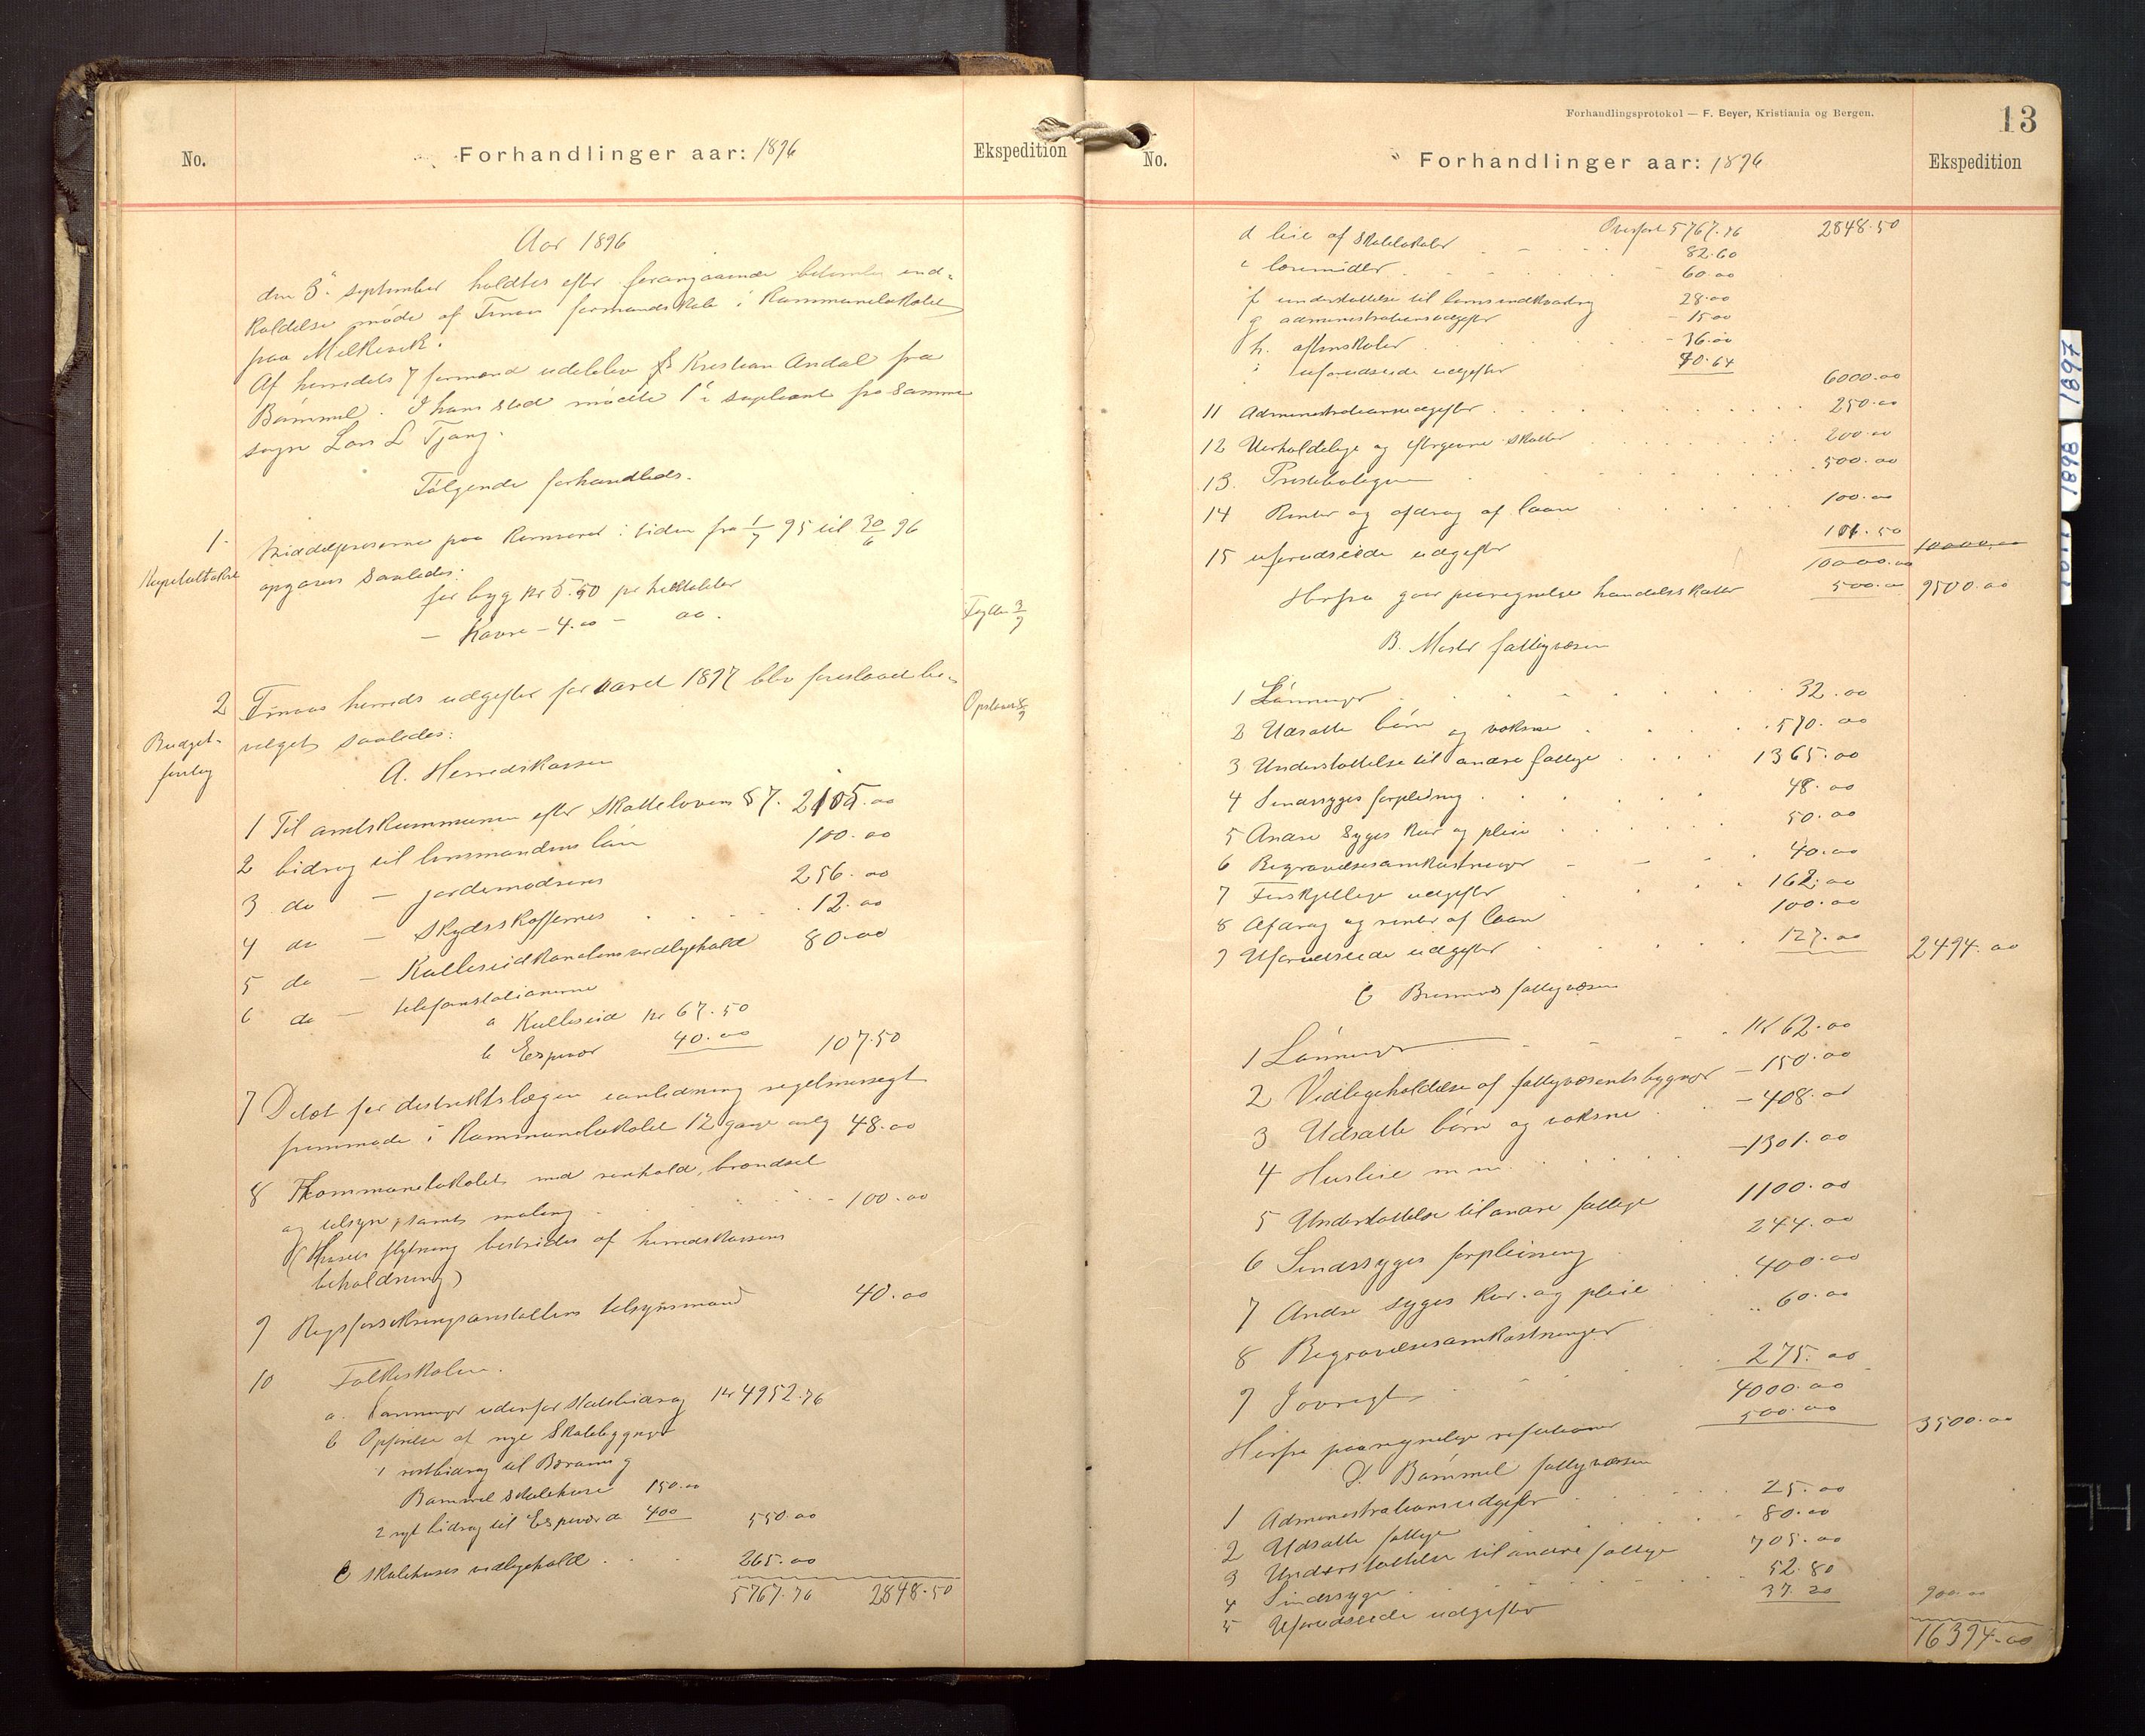 No.
Forhandlinger aar: 1896
Ekspedition
Aar 1896
den 3. september holdtes efter foregaaende bekvemelig ind-
kaldelse møde af Finaas formandskab i Kommunelokalet
paa Mælkevik.
Af herredets 7 formænd udeblev Kristian Andal fra
Bømmel. I hans sted mødte 1ste supleant fra samme
sogn Lars L Tjong.
Følgende forhandledes.
1.
Kapitaltakst
Middelpriserne paa Kornvarer i tiden fra 1/7 95 til 30/6 96
opgaves saaledes:
for byg kr 5.50 pr hektoliter
— Havre — 4.00 — do.
2
Budget-
forslag
Finaas herreds udgifter for aaret 1897 blev foreslaaet be-
vilget saaledes:
Opslaaet
A. Herredskassen
1 Til amtskommunen efter Skatteloven § 7. 2105.00
2 bidrag til lensmandens løn 100.00
3 do — jordemødrene 256.00
4 do — Skydsskafferne 12.00
5 do — Kulleseidkanalens vedligehold 80.00
6 do — telefonstationerne
a Kulleseid kr 67.50
b Espevær 40.00 107.50
7 Do for distriktslægen i anledning regelmæssigt
fremmøde i Kommunelokalet 12 gange aarlig 48.00
8 Kommunelokalets med renhold, brændsel
og tilsyn, samt maling 100.00
(Husets flytning bestrides af herredskassens
beholdning)
9 Rigsforsikringsanstaltens tilsynsmand 40.00
10 Folkeskolen.
a. Lønninger udenfor Statsbidrag kr 4952.76
b Opførelse af nye Skolebygninger
1 restbidrag til
Bømmel Skolehuse 150.00
2 nyt bidrag til Espevær do 400 550.00
c Skolehuses vedligehold 265.00
5767.76 2848.50
Forhandlingsprotokol — F. Beyer, Kristiania og Bergen.
13
No.
Forhandlinger aar: 1896
Ekspedition
Overført 5767.76 2848.50
d leie af Skolelokaler 82.60
e læremidler 60.00
f understøttelse til børns indkvartering 28.00
g administrationsudgifter — 15.00
h. aftenskoler — 36.00
i uforudseede udgifter 10.64
6000.00
11 Administrationsudgifter 250.00
12 Uerholdelige og eftergivne Skatter 200.00
13. Presteboligen 500.00
14 Renter og afdrag af laan 100.00
15 uforudseede udgifter 101.50
10000.00 10000.00
Herfra gaar paaregnelige handelsskatter 500.00 9500.00
B. Moster fattigvæsen
1 Lønninger 32.00
2 Udsatte børn og voksne 570.00
3 Understøttelse til andre fattige 1365.00
4 Sindssyges forpleining 48.00
5 Andre syges kur og pleie 50.00
6 Begravelsesomkostninger 40.00
7 Forskjellige udgifter 162.00
8 Afdrag og renter af laan 100.00
9 Uforudseede udgifter 127.00
2494.00
C Bremnes fattigvæsen
1 Lønninger kr 62.00
2 Vedligeholdelse af fattigvæsenets bygninger — 150.00
3 Udsatte børn og voksne — 408.00
4 Husleie m m. — 1301.00
5 Understøttelse til andre fattige 1100.00
6 Sindssyges forpleining 244.00
7 Andre syges kur og pleie 400.00
8 Begravelsesomkostninger 60.00
9 Iøvrigt 275.00
4000.00
Herfra paaregnelige refusioner 500.00
3500.00
D. Bømmel fattigvæsen
1 Administrationsudgifter 25.00
2 Udsatte fattige 80.00
3 Understøttelse til andre fattige 705.00
4 Sindssyge 52.80
5 Uforudseede udgifter 37.20
900.00
16394.00
1897
1898